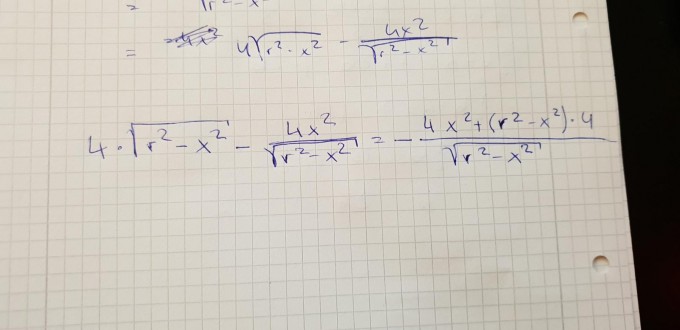 = √r² - x
= 4√r² - x² - 4x² / √r² - x²
4 · √r² - x² - 4x² / √r² - x² = - 4x² + (r² - x²) · 4 / √r² - x²